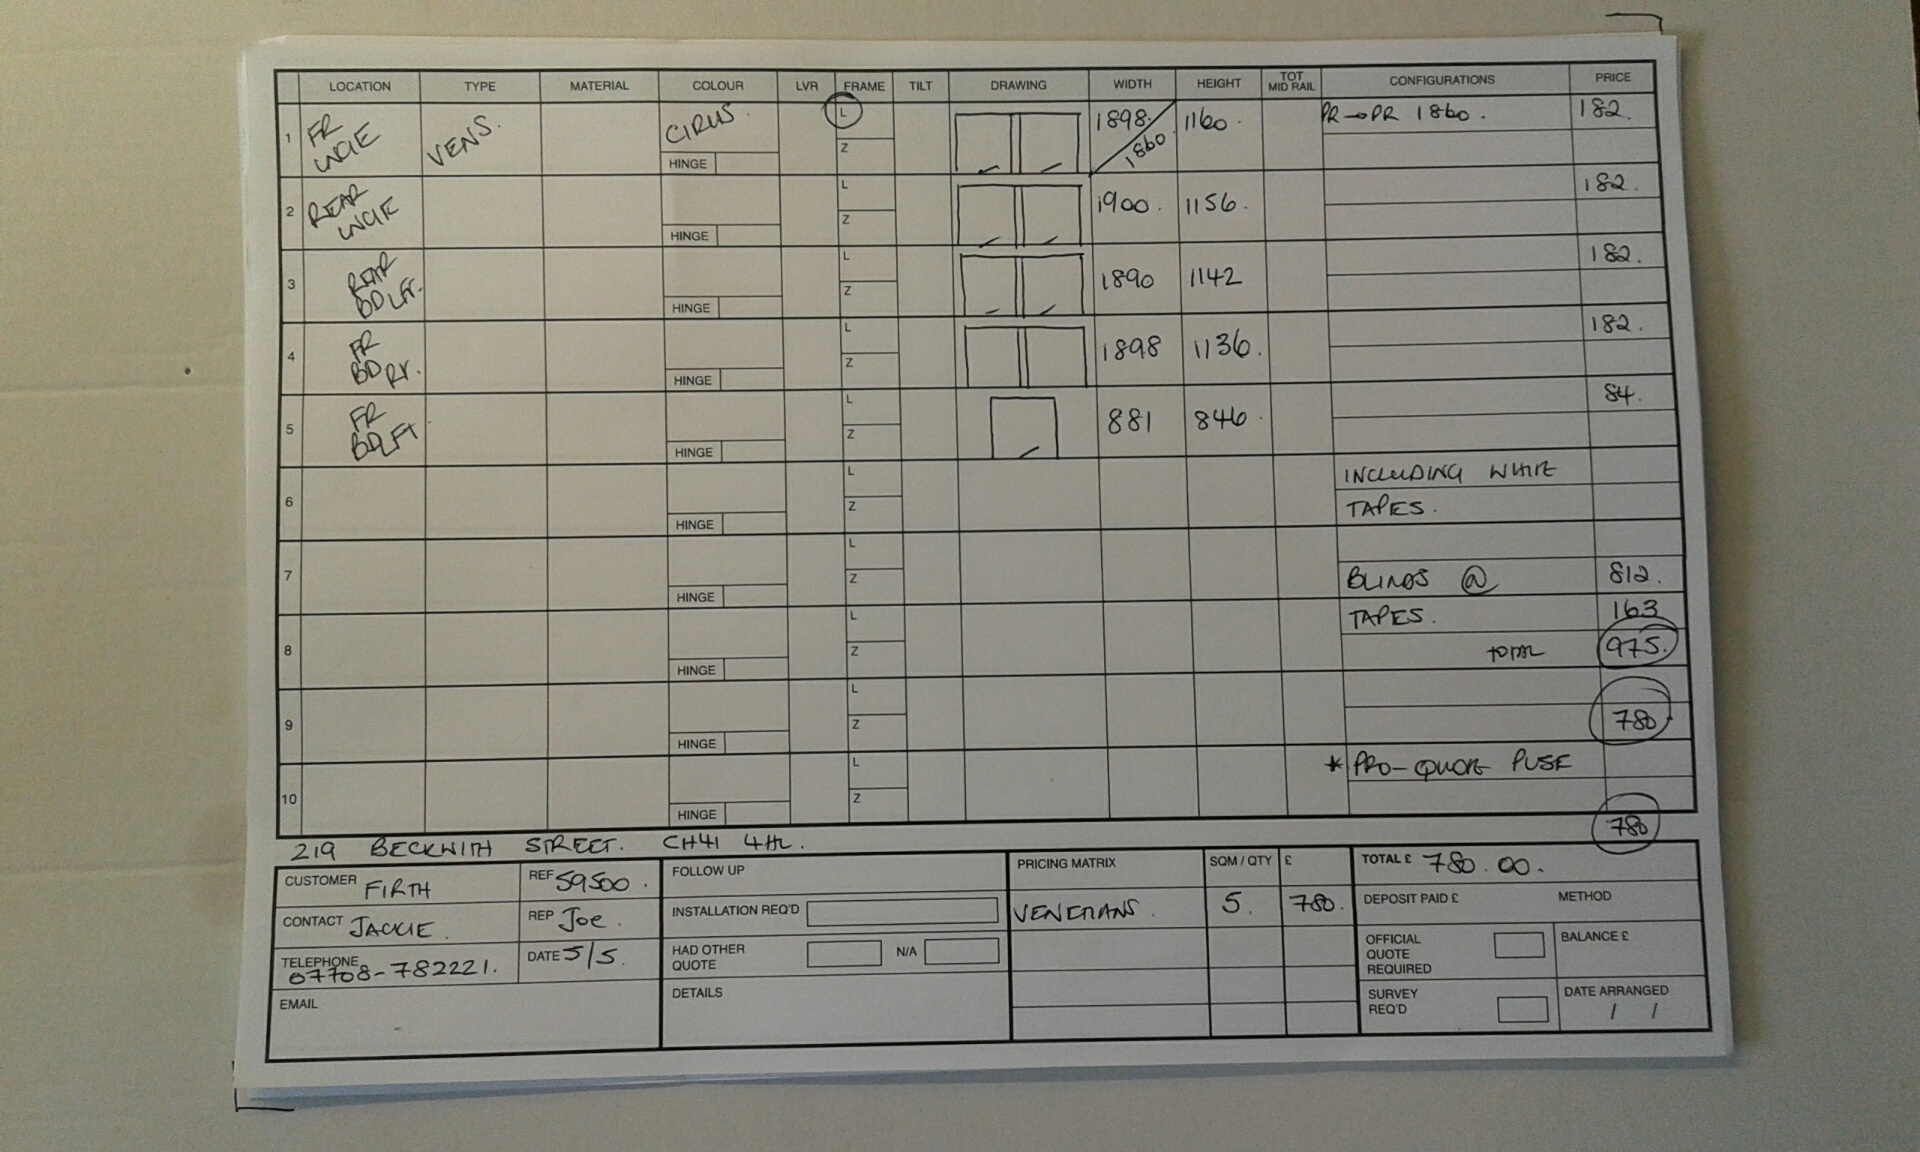 LOCATION TYPE MATERIAL COLOUR LVR FRAME TILT DRAWING WIDTH HEIGHT TOT MID RAIL CONFIGURATIONS PRICE
1 FR LNGE VENS. CIRUS. HINGE L Z 1898. 1860 1160. PR→PR 1860. 182.
2 REAR LNGE HINGE L Z 1900. 1156. 182.
3 REAR BD LFT. HINGE L Z 1890 1142 182.
4 FR BD RT. HINGE L Z 1898 1136. 182.
5 FR BD LFT HINGE L Z 881 846. 84.
6 HINGE L Z INCLUDING WHITE
TAPES.
7 HINGE L Z BLINDS @ 812.
8 HINGE L Z TAPES. 163
TOTAL 975.
9 HINGE L Z 780
10 HINGE L Z * PRO-QUOTE PLSE
780
219 BECKWITH STREET. CH41 4HL.
CUSTOMER FIRTH REF 59500.
CONTACT JACKIE. REP JOE.
TELEPHONE 07708-782221. DATE 5/5.
EMAIL
FOLLOW UP
INSTALLATION REQ'D
HAD OTHER QUOTE N/A
DETAILS
PRICING MATRIX SQM / QTY £
VENETIANS. 5. 780.
TOTAL £ 780.00.
DEPOSIT PAID £ METHOD
OFFICIAL QUOTE REQUIRED BALANCE £
SURVEY REQ'D DATE ARRANGED
/ /